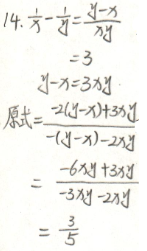 14. 1/x - 1/y = (y-x)/(xy)
= 3
y-x=3xy
原式 = (-2(y-x)+3xy)/(-(y-x)-2xy)
= (-6xy+3xy)/(-3xy-2xy)
= 3/5